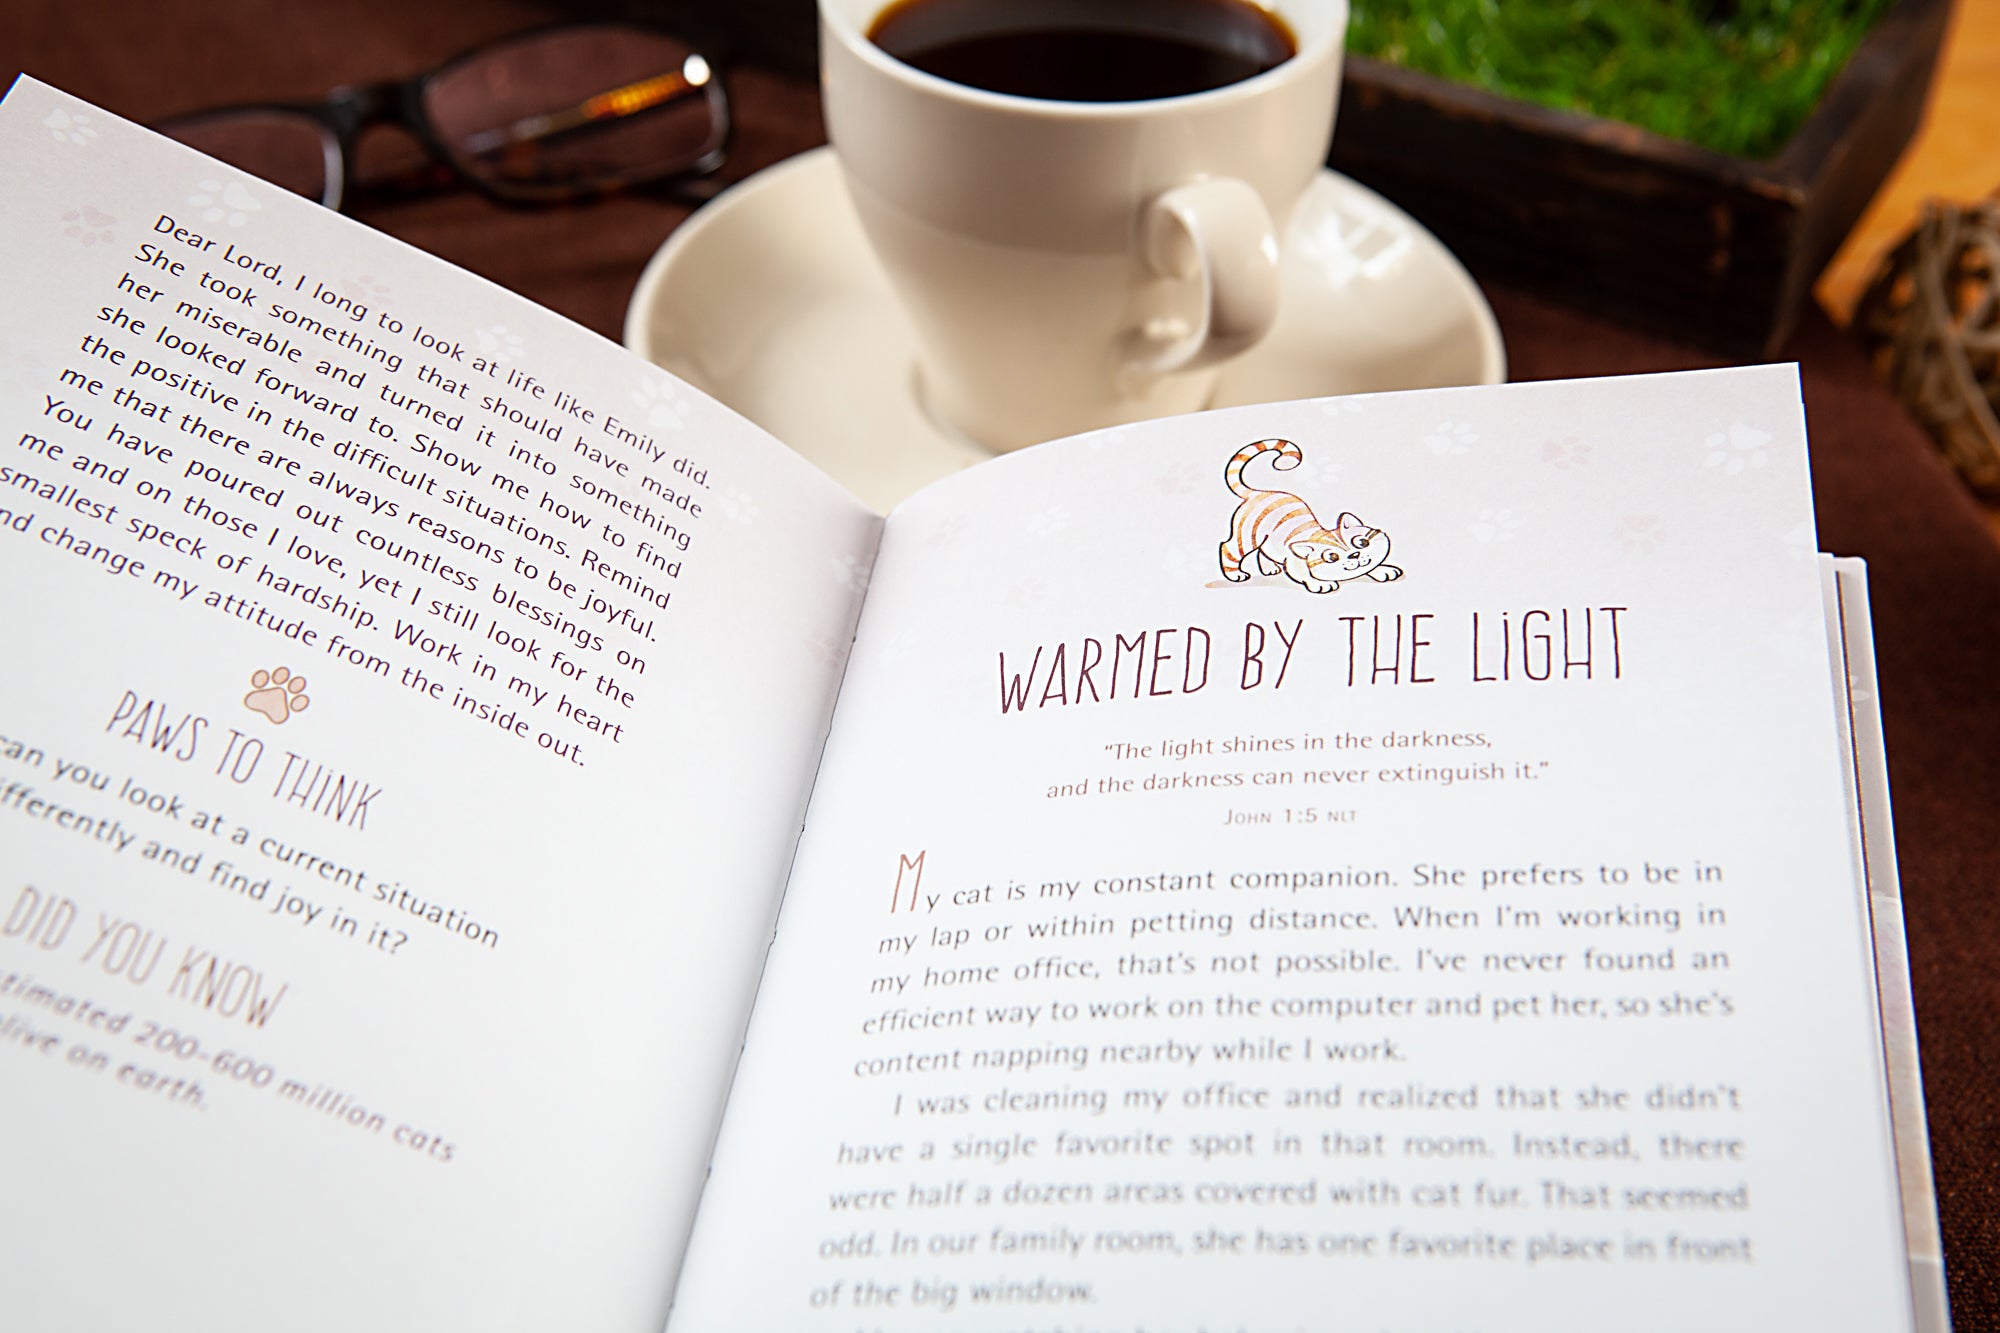 Dear Lord, I long to look at life like Emily did.
She took something that should have made
her miserable and turned it into something
she looked forward to. Show me how to find
the positive in the difficult situations. Remind
me that there are always reasons to be joyful.
You have poured out countless blessings on
me and on those I love, yet I still look for the
smallest speck of hardship. Work in my heart
nd change my attitude from the inside out.
PAWS TO THINK
can you look at a current situation
ifferently and find joy in it?
DID YOU KNOW
timated 200-600 million cats
alive on earth.
WARMED BY THE LIGHT
“The light shines in the darkness,
and the darkness can never extinguish it.”
JOHN 1:5 NLT
My cat is my constant companion. She prefers to be in
my lap or within petting distance. When I'm working in
my home office, that's not possible. I've never found an
efficient way to work on the computer and pet her, so she's
content napping nearby while I work.
I was cleaning my office and realized that she didn't
have a single favorite spot in that room. Instead, there
were half a dozen areas covered with cat fur. That seemed
odd. In our family room, she has one favorite place in front
of the big window.